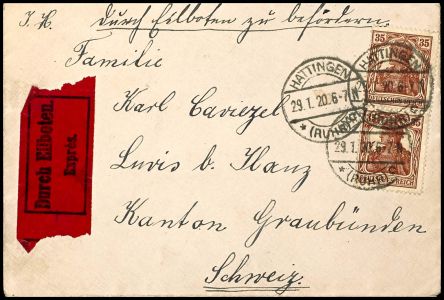 J. H. Durch Eilboten zu befördern.
Familie
Karl Caviezel
Luvis b. Ilanz
Kanton Graubünden
Schweiz.
Durch Eilboten.
Exprès.
HATTINGEN
29.1.20.6-7N
* (RUHR)
35 35
HATTINGEN
(RUHR)
29.1.20.6-7N
* (RUHR)
REICH